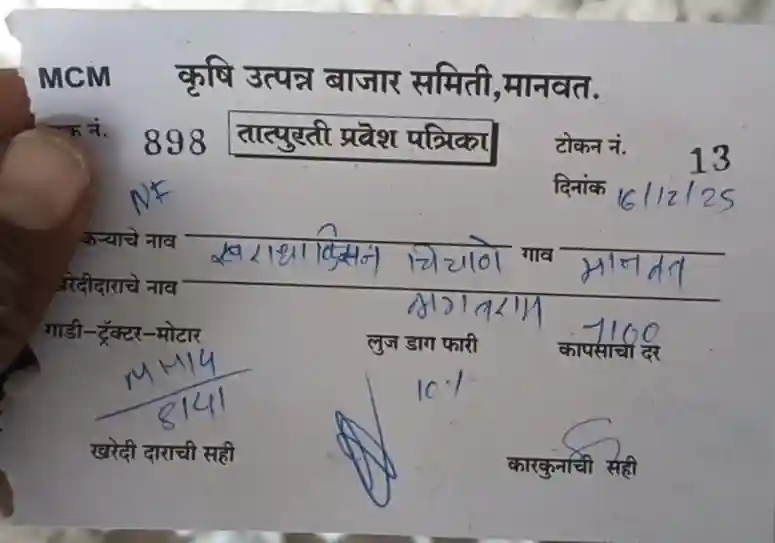 MCM कृषि उत्पन्न बाजार समिती,मानवत.
क नं. 898 तात्पुरती प्रवेश पत्रिका टोकन नं. 13
NF दिनांक 16/12/25
कऱ्याचे नाव राधाकिसन गाव मानवत
रेदीदाराचे नाव भागतराम
गाडी-ट्रॅक्टर-मोटार लुज डाग फारी 7100 कापसाचा दर
10%
खरेदी दाराची सही कारकुनाची सही